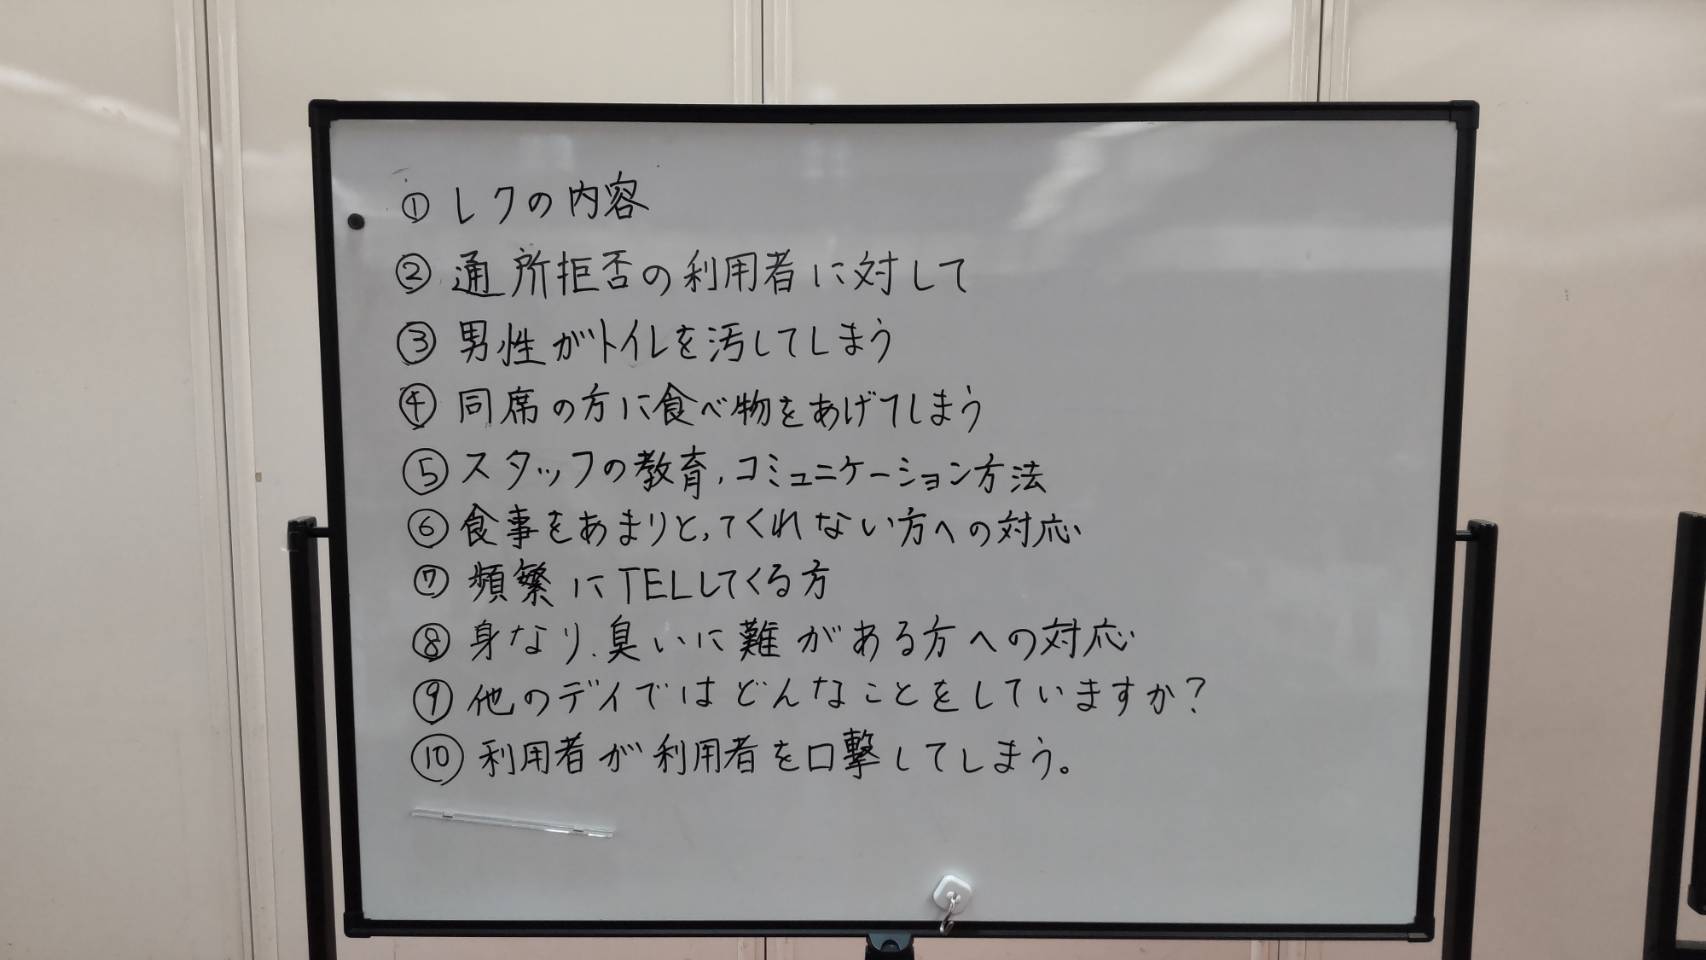 ① レクの内容
② 通所拒否の利用者に対して
③ 男性がトイレを汚してしまう
④ 同席の方に食べ物をあげてしまう
⑤ スタッフの教育,コミュニケーション方法
⑥ 食事をあまりとってくれない方への対応
⑦ 頻繁にTELしてくる方
⑧ 身なり、臭いに難がある方への対応
⑨ 他のデイではどんなことをしていますか?
⑩ 利用者が利用者を口撃してしまう。